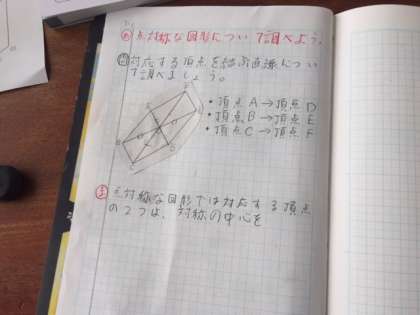 め 点対称な図形について調べよう。
問 対応する頂点を結ぶ直線につい
て調べましょう。
・頂点A→頂点D
・頂点B→頂点E
・頂点C→頂点F
ま 点対称な図形では対応する頂点
の2つは、対称の中心を